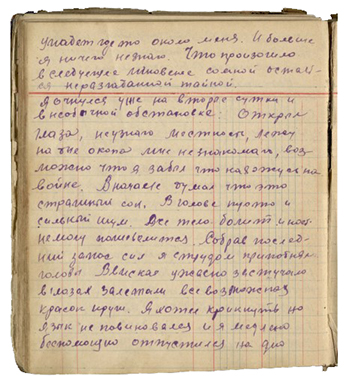 упадет где то около меня. И больше
я ничего не знаю. Что произошло
в следующее мгновение со мной остает-
ся неразгаданной тайной.
Я очнулся уже на вторые сутки и
в необычной обстановке: Открыл
глаза, не узнаю местность, лежу
на дне окопа мне не знакомом, воз
можно что я забыл что нахожусь на
войне. В начале думал что это
страшный сон. В голове пусто и
сильный шум. Все тело болит и
немогу пошевелится. Собрав послед-
ний запас сил я с трудом приподнял
голову В висках ужасно застучало
в глазах залетали всевозможных
красок круги. Я хотел крикнуть но
язык не повиновался и я медленно
беспомощно отпустился на дно